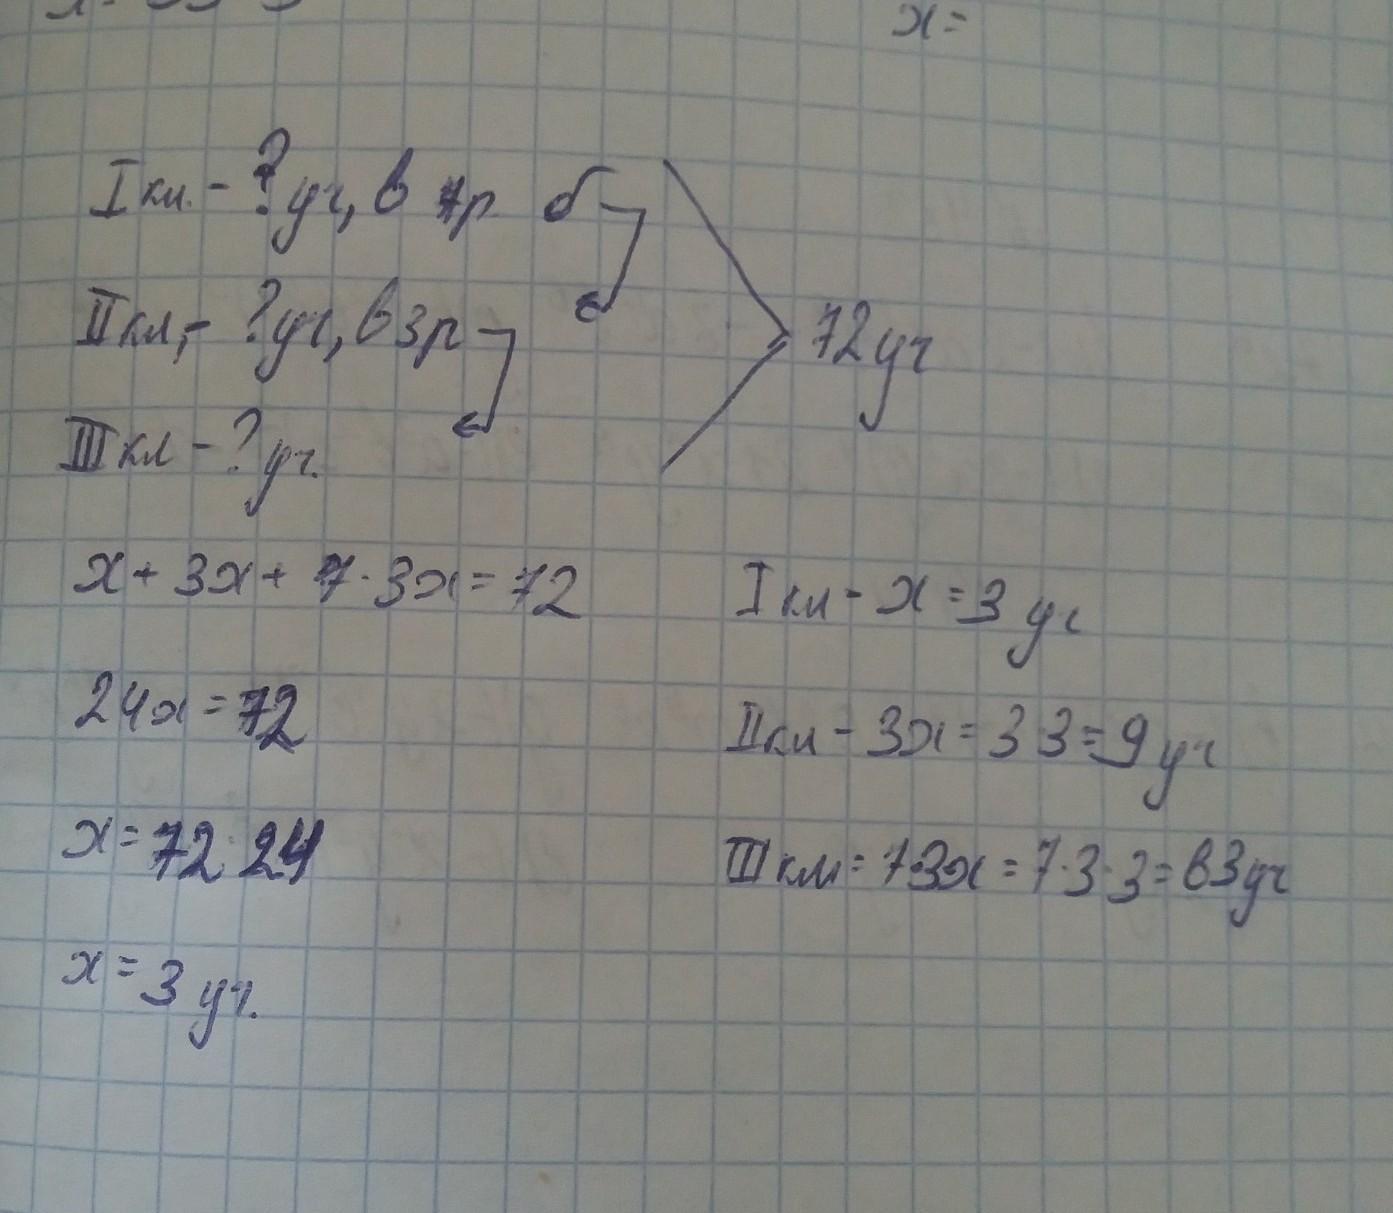 x=
I кл. - ? уч, в 7р б
II кл, - ? уч, в 3р
72 уч
III кл - ? уч.
x + 3x + 7 · 3x = 72
24x = 72
x = 72 24
x = 3 уч.
I кл - x = 3 уч
II кл - 3x = 3 3 = 9 уч
III кл = 7·3x = 7·3·3 = 63 уч